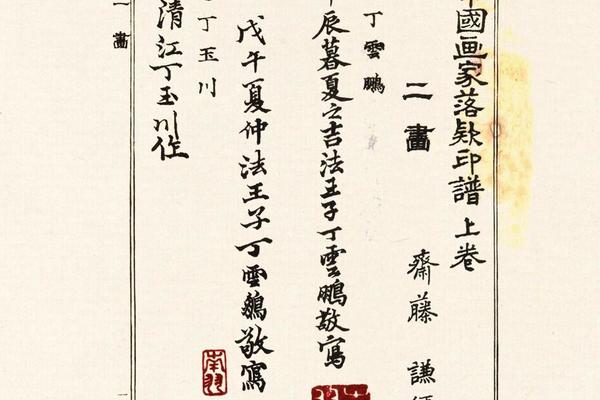 國画家落欵印譜 上卷
二畫
齋藤 謙
丁雲鵬
辰暮夏之吉法王子丁雲鵬敬寫
戊午夏仲法王子丁雲鵬敬寫
南羽
丁玉川
清江丁玉川作
二畫